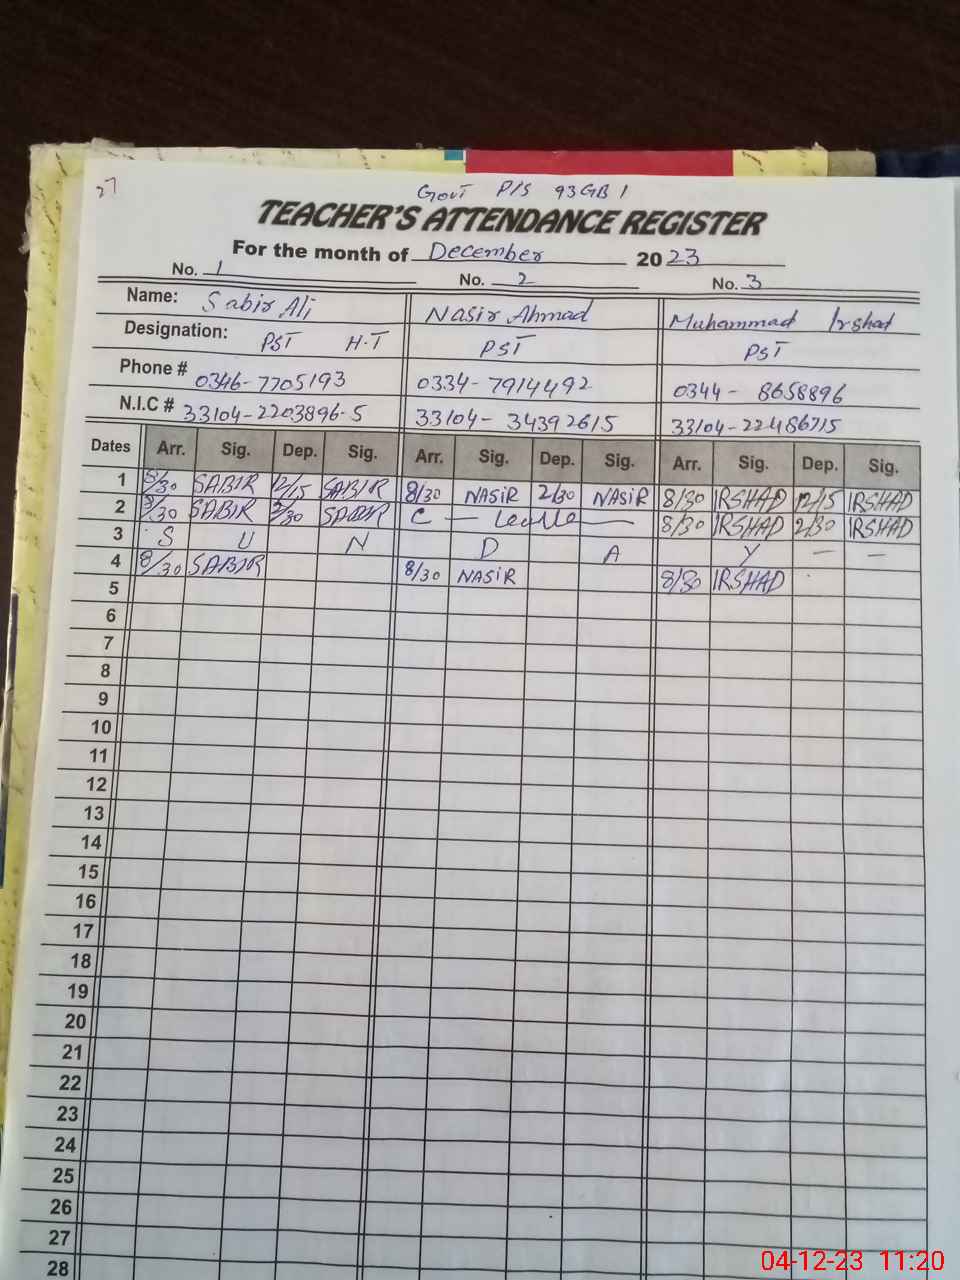 27
Govt P/S 93GB 1
TEACHER'S ATTENDANCE REGISTER
For the month of December 2023
No. 1 No. 2 No. 3
Name: Sabir Ali Nasir Ahmad Muhammad Irshad
Designation: PST H.T PST PST
Phone # 0346-7705193 0334-7914492 0344-8658896
N.I.C # 33104-2203896-5 33104-34392615 33104-22486715
Dates Arr. Sig. Dep. Sig. Arr. Sig. Dep. Sig. Arr. Sig. Dep. Sig.
1 8/30 SABIR 12/15 SABIR 8/30 NASIR 2/30 NASIR 8/30 IRSHAD 12/15 IRSHAD
2 8/30 SABIR 2/30 SABIR C — Leave — 8/30 IRSHAD 2/30 IRSHAD
3 S U N D A Y — —
4 8/30 SABIR 8/30 NASIR 8/30 IRSHAD
5
6
7
8
9
10
11
12
13
14
15
16
17
18
19
20
21
22
23
24
25
26
27
28
04-12-23 11:20